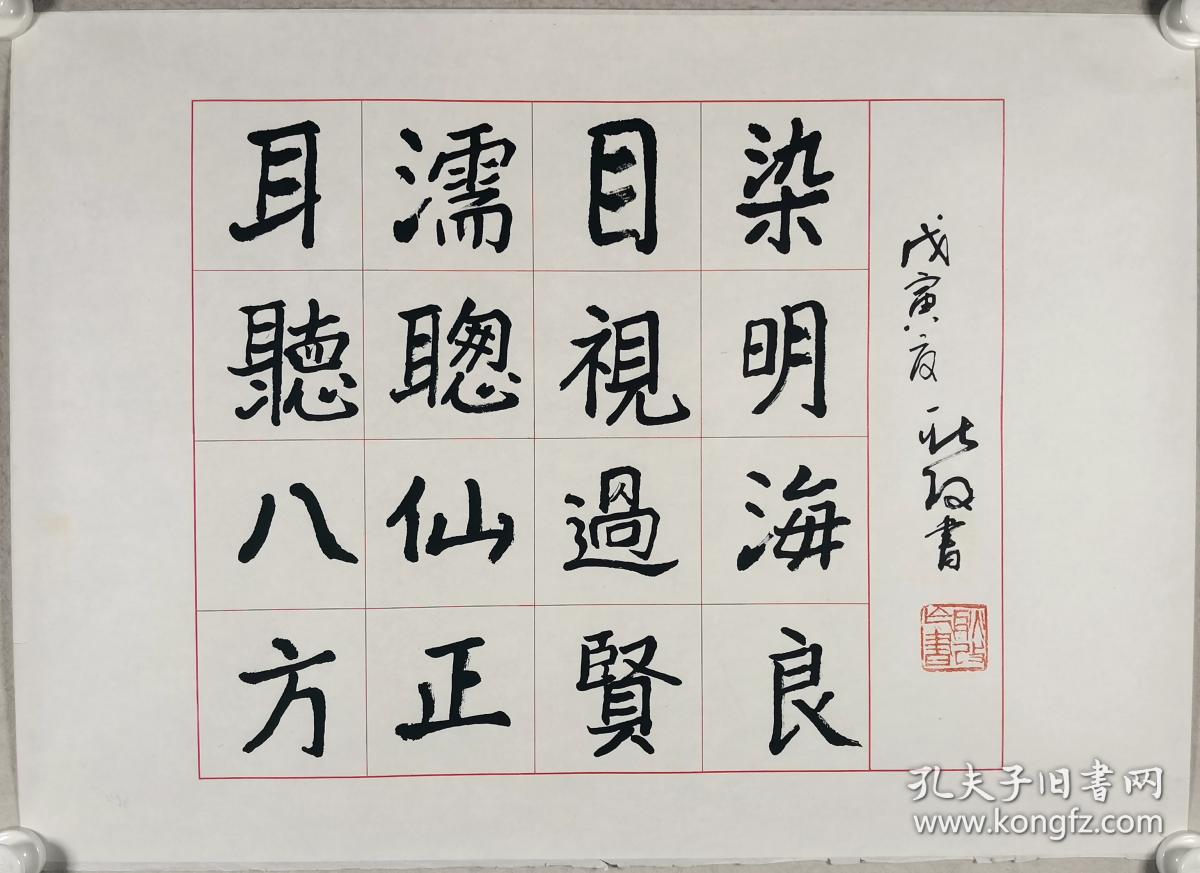 耳濡目染
聽聰視明
八仙過海
方正賢良
戊寅夏 耿政書
孔夫子旧书网
www.kongfz.com